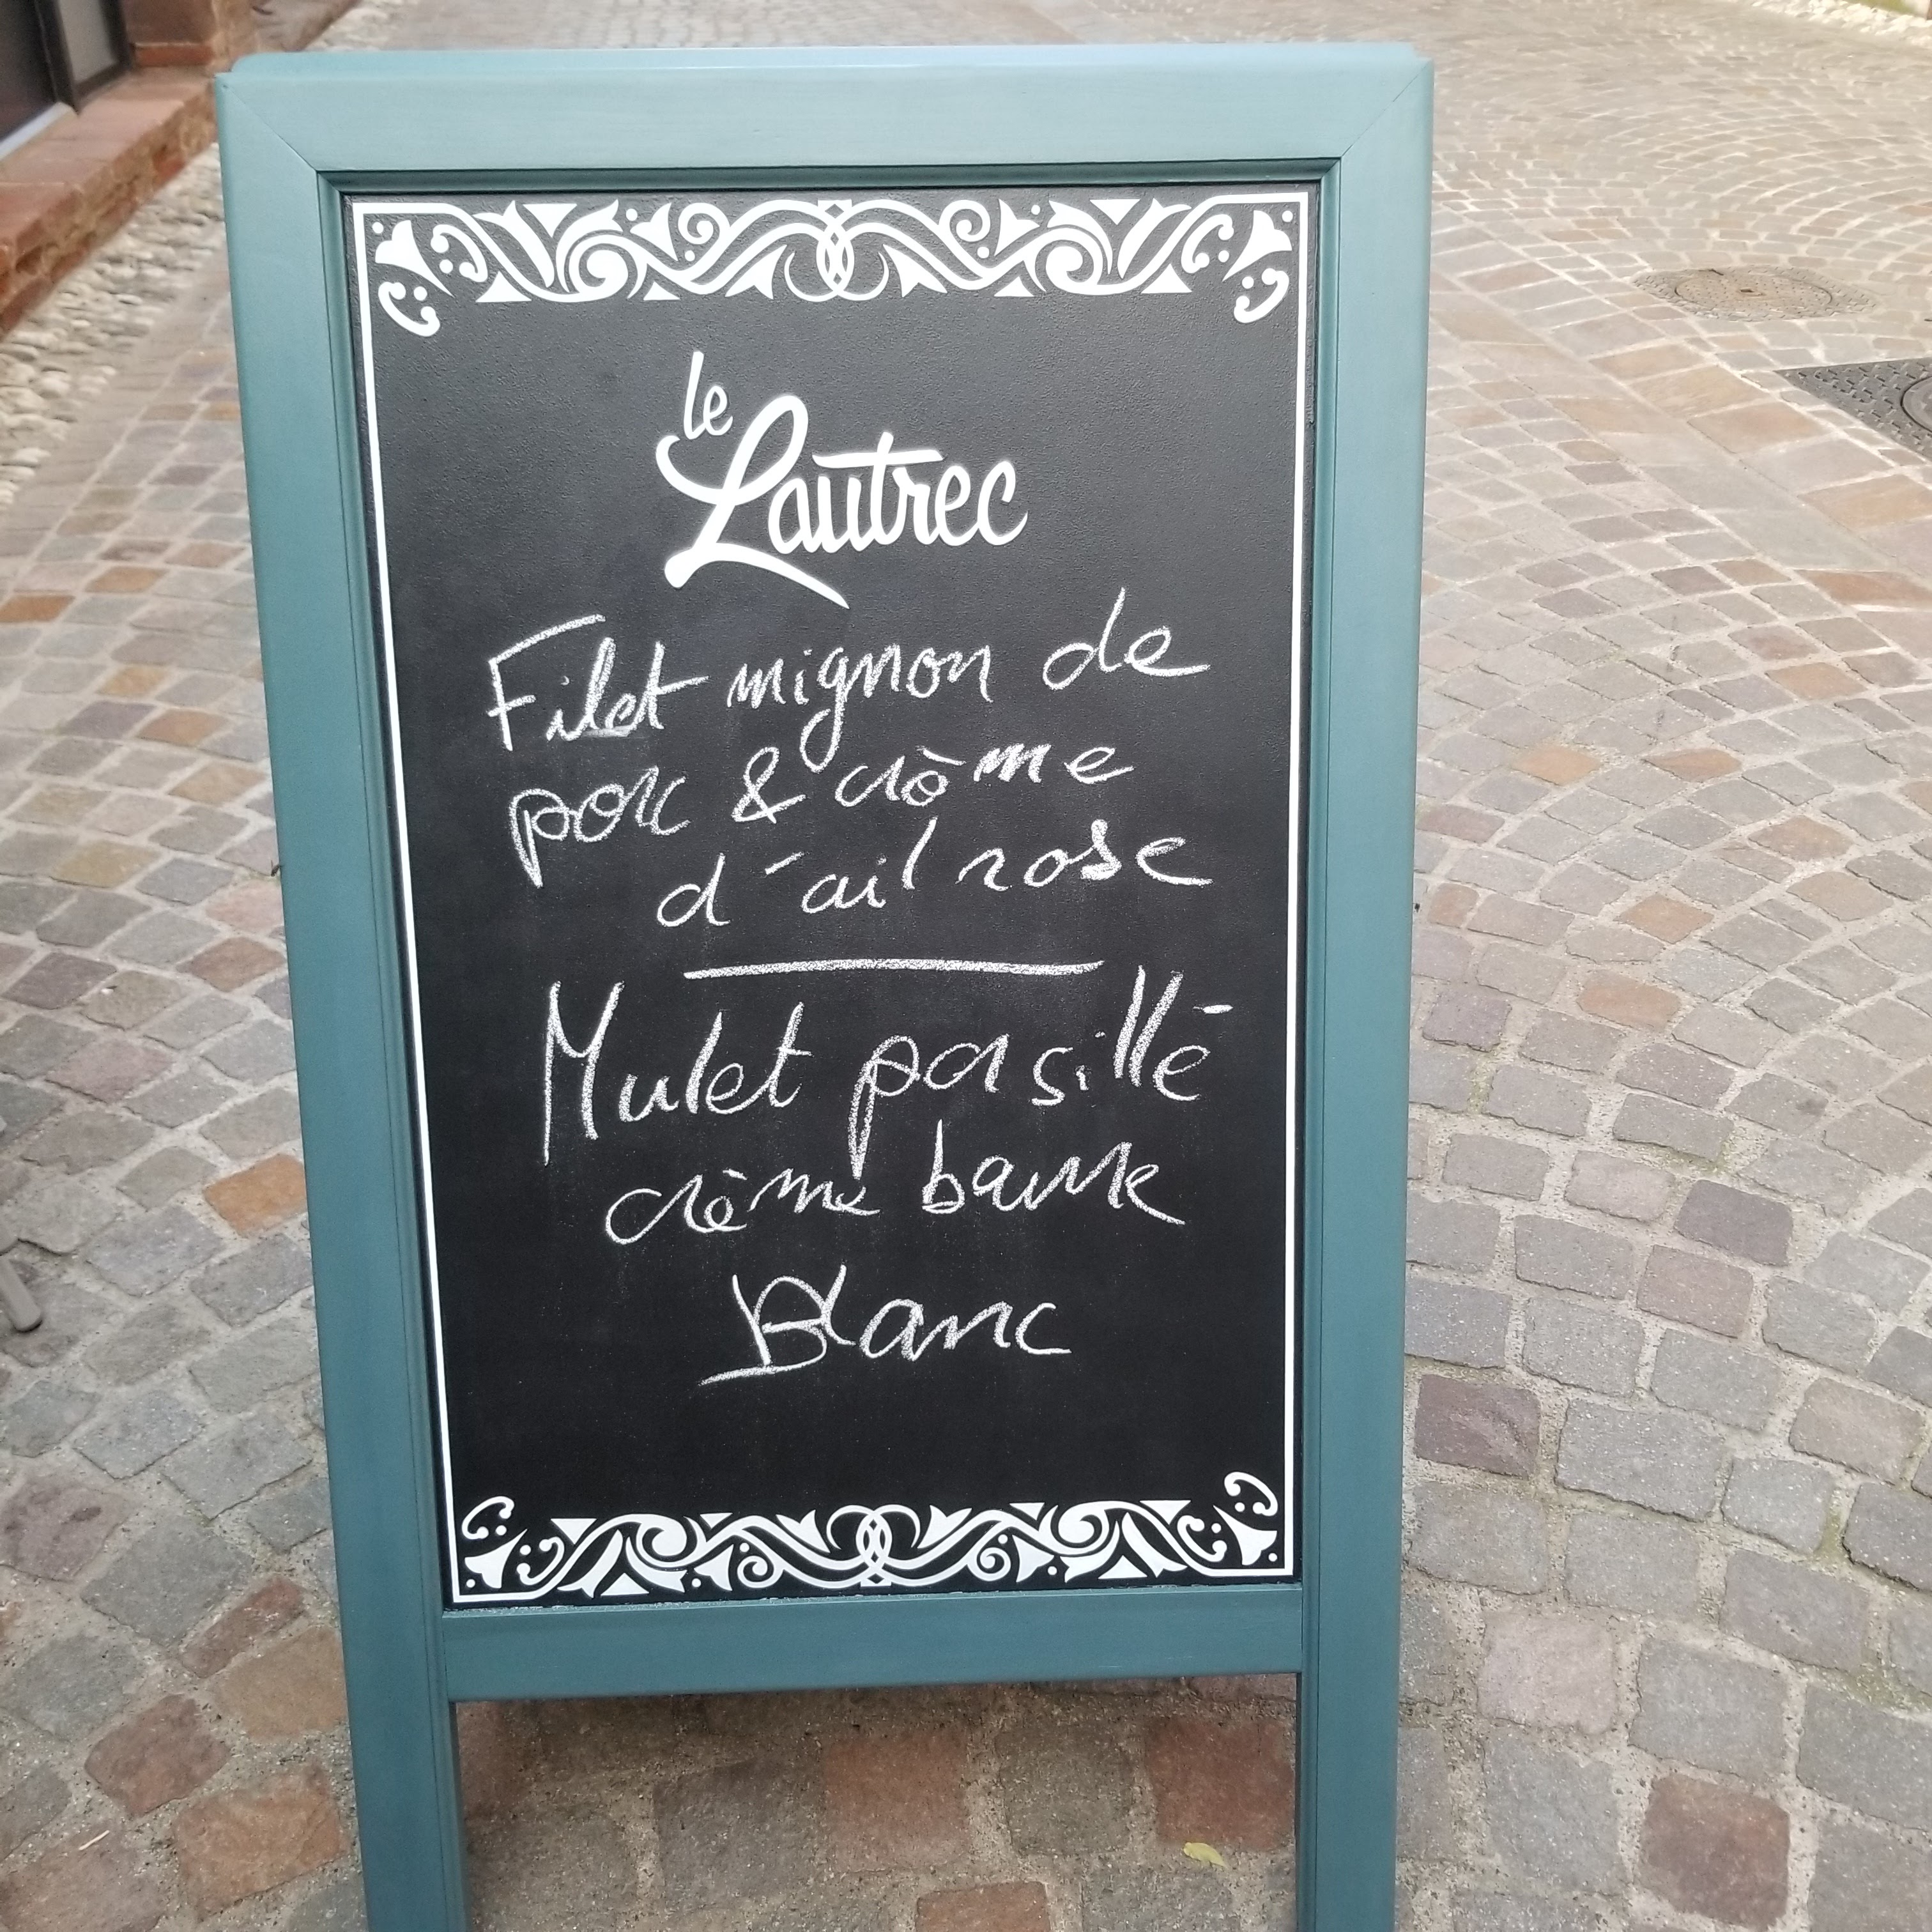 le
Lautrec
Filet mignon de
porc & crème
d'ail rose
Mulet persillé
crème beurre
Blanc